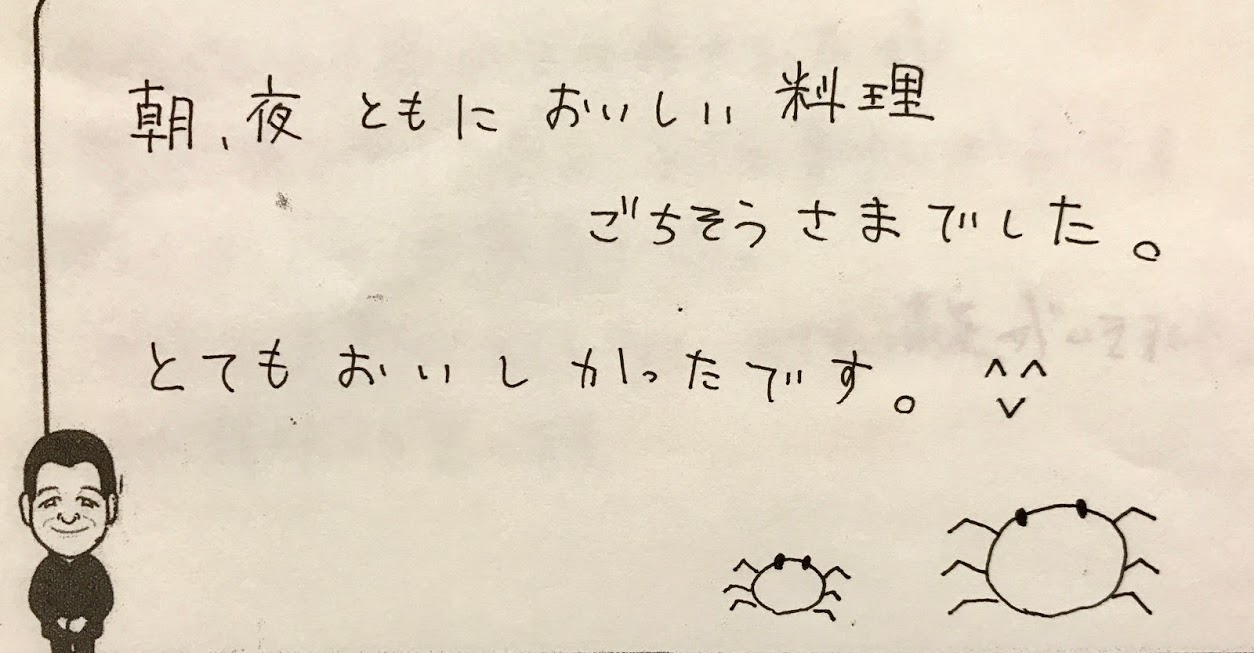 朝、夜ともにおいしい料理
ごちそうさまでした。
とてもおいしかったです。^^
v